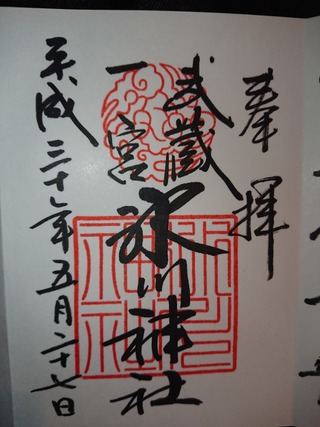 奉拝
武蔵
一宮
氷川神社
平成三十年五月二十七日
氷川神社